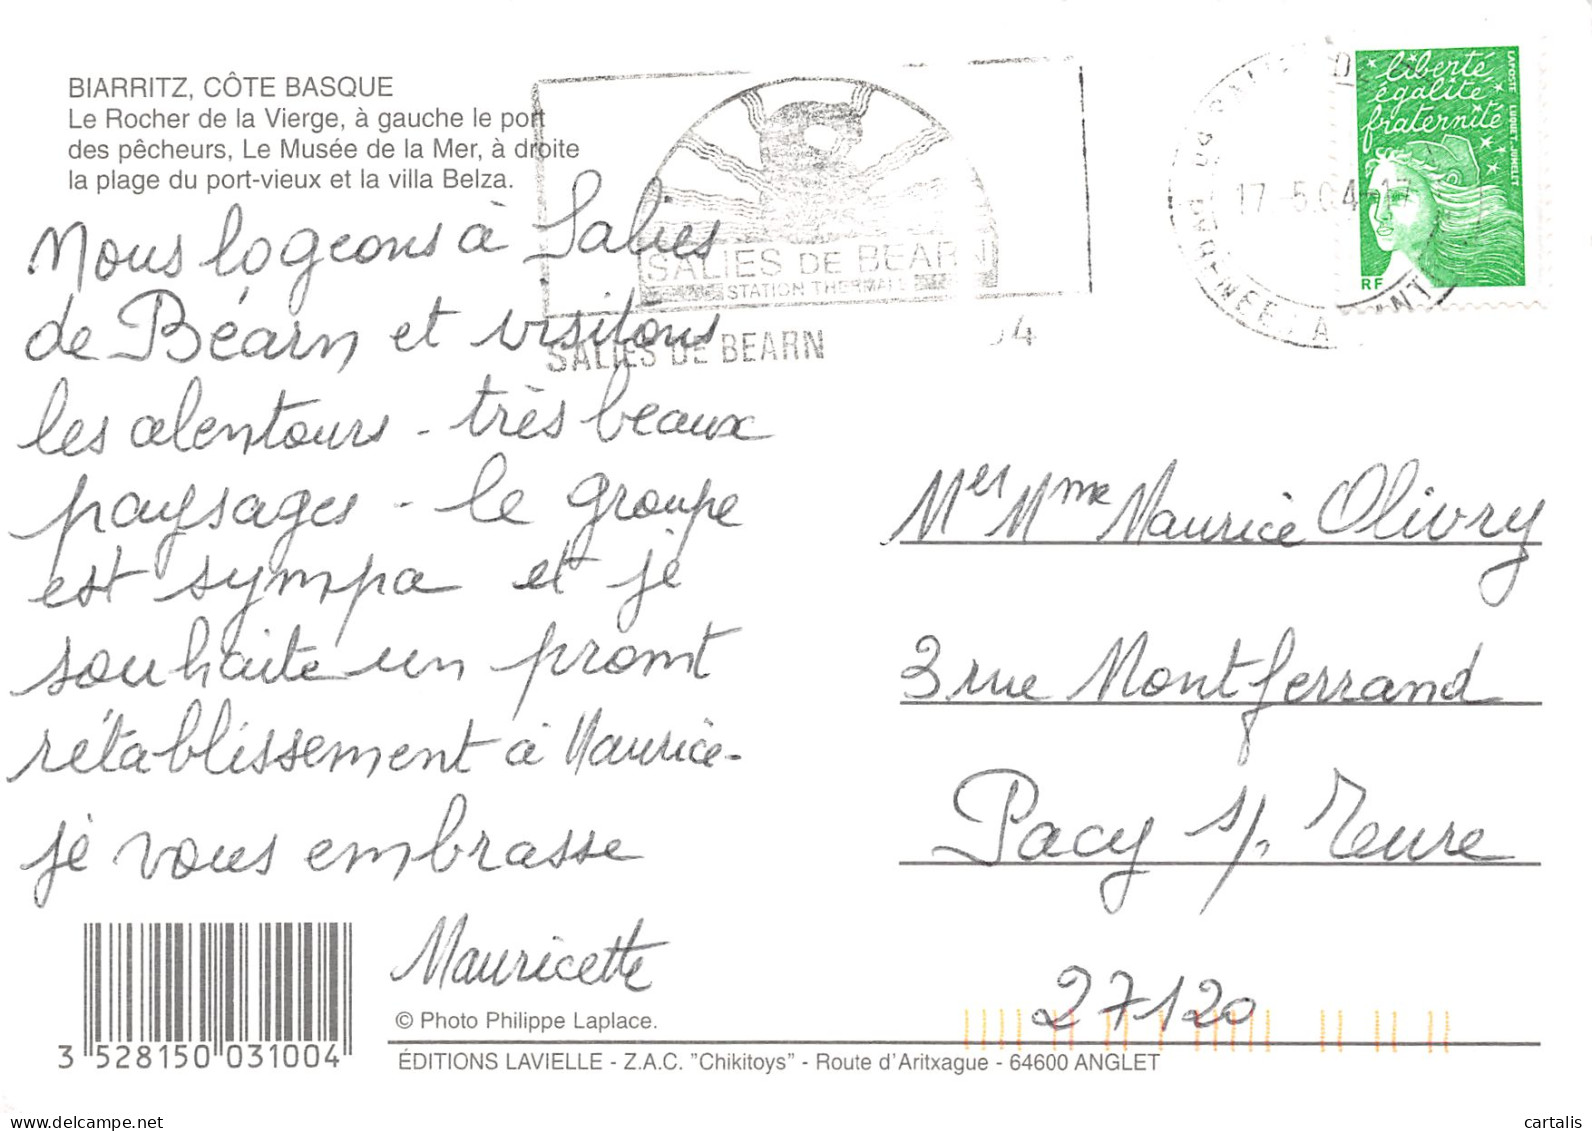 BIARRITZ, CÔTE BASQUE
Le Rocher de la Vierge, à gauche le port
des pêcheurs, Le Musée de la Mer, à droite
la plage du port-vieux et la villa Belza.
SALIES DE BEARN
STATION THERMALE
SALIES DE BEARN
17-5.04-17
liberté
égalité
fraternité
LA POSTE LUQUET JUMELET
RF
Nous logeons à Salies
de Béarn et visitons
les alentours - très beaux
paysages - le groupe
est sympa et je
souhaite un promt
rétablissement à Maurice -
je vous embrasse
Mauricette
Mr et Mme Maurice Olivry
3 rue Montferrand
Pacy s/. Eure
27120
© Photo Philippe Laplace.
3 528150 031004
ÉDITIONS LAVIELLE - Z.A.C. "Chikitoys" - Route d'Aritxague - 64600 ANGLET
www.delcampe.net
cartalis